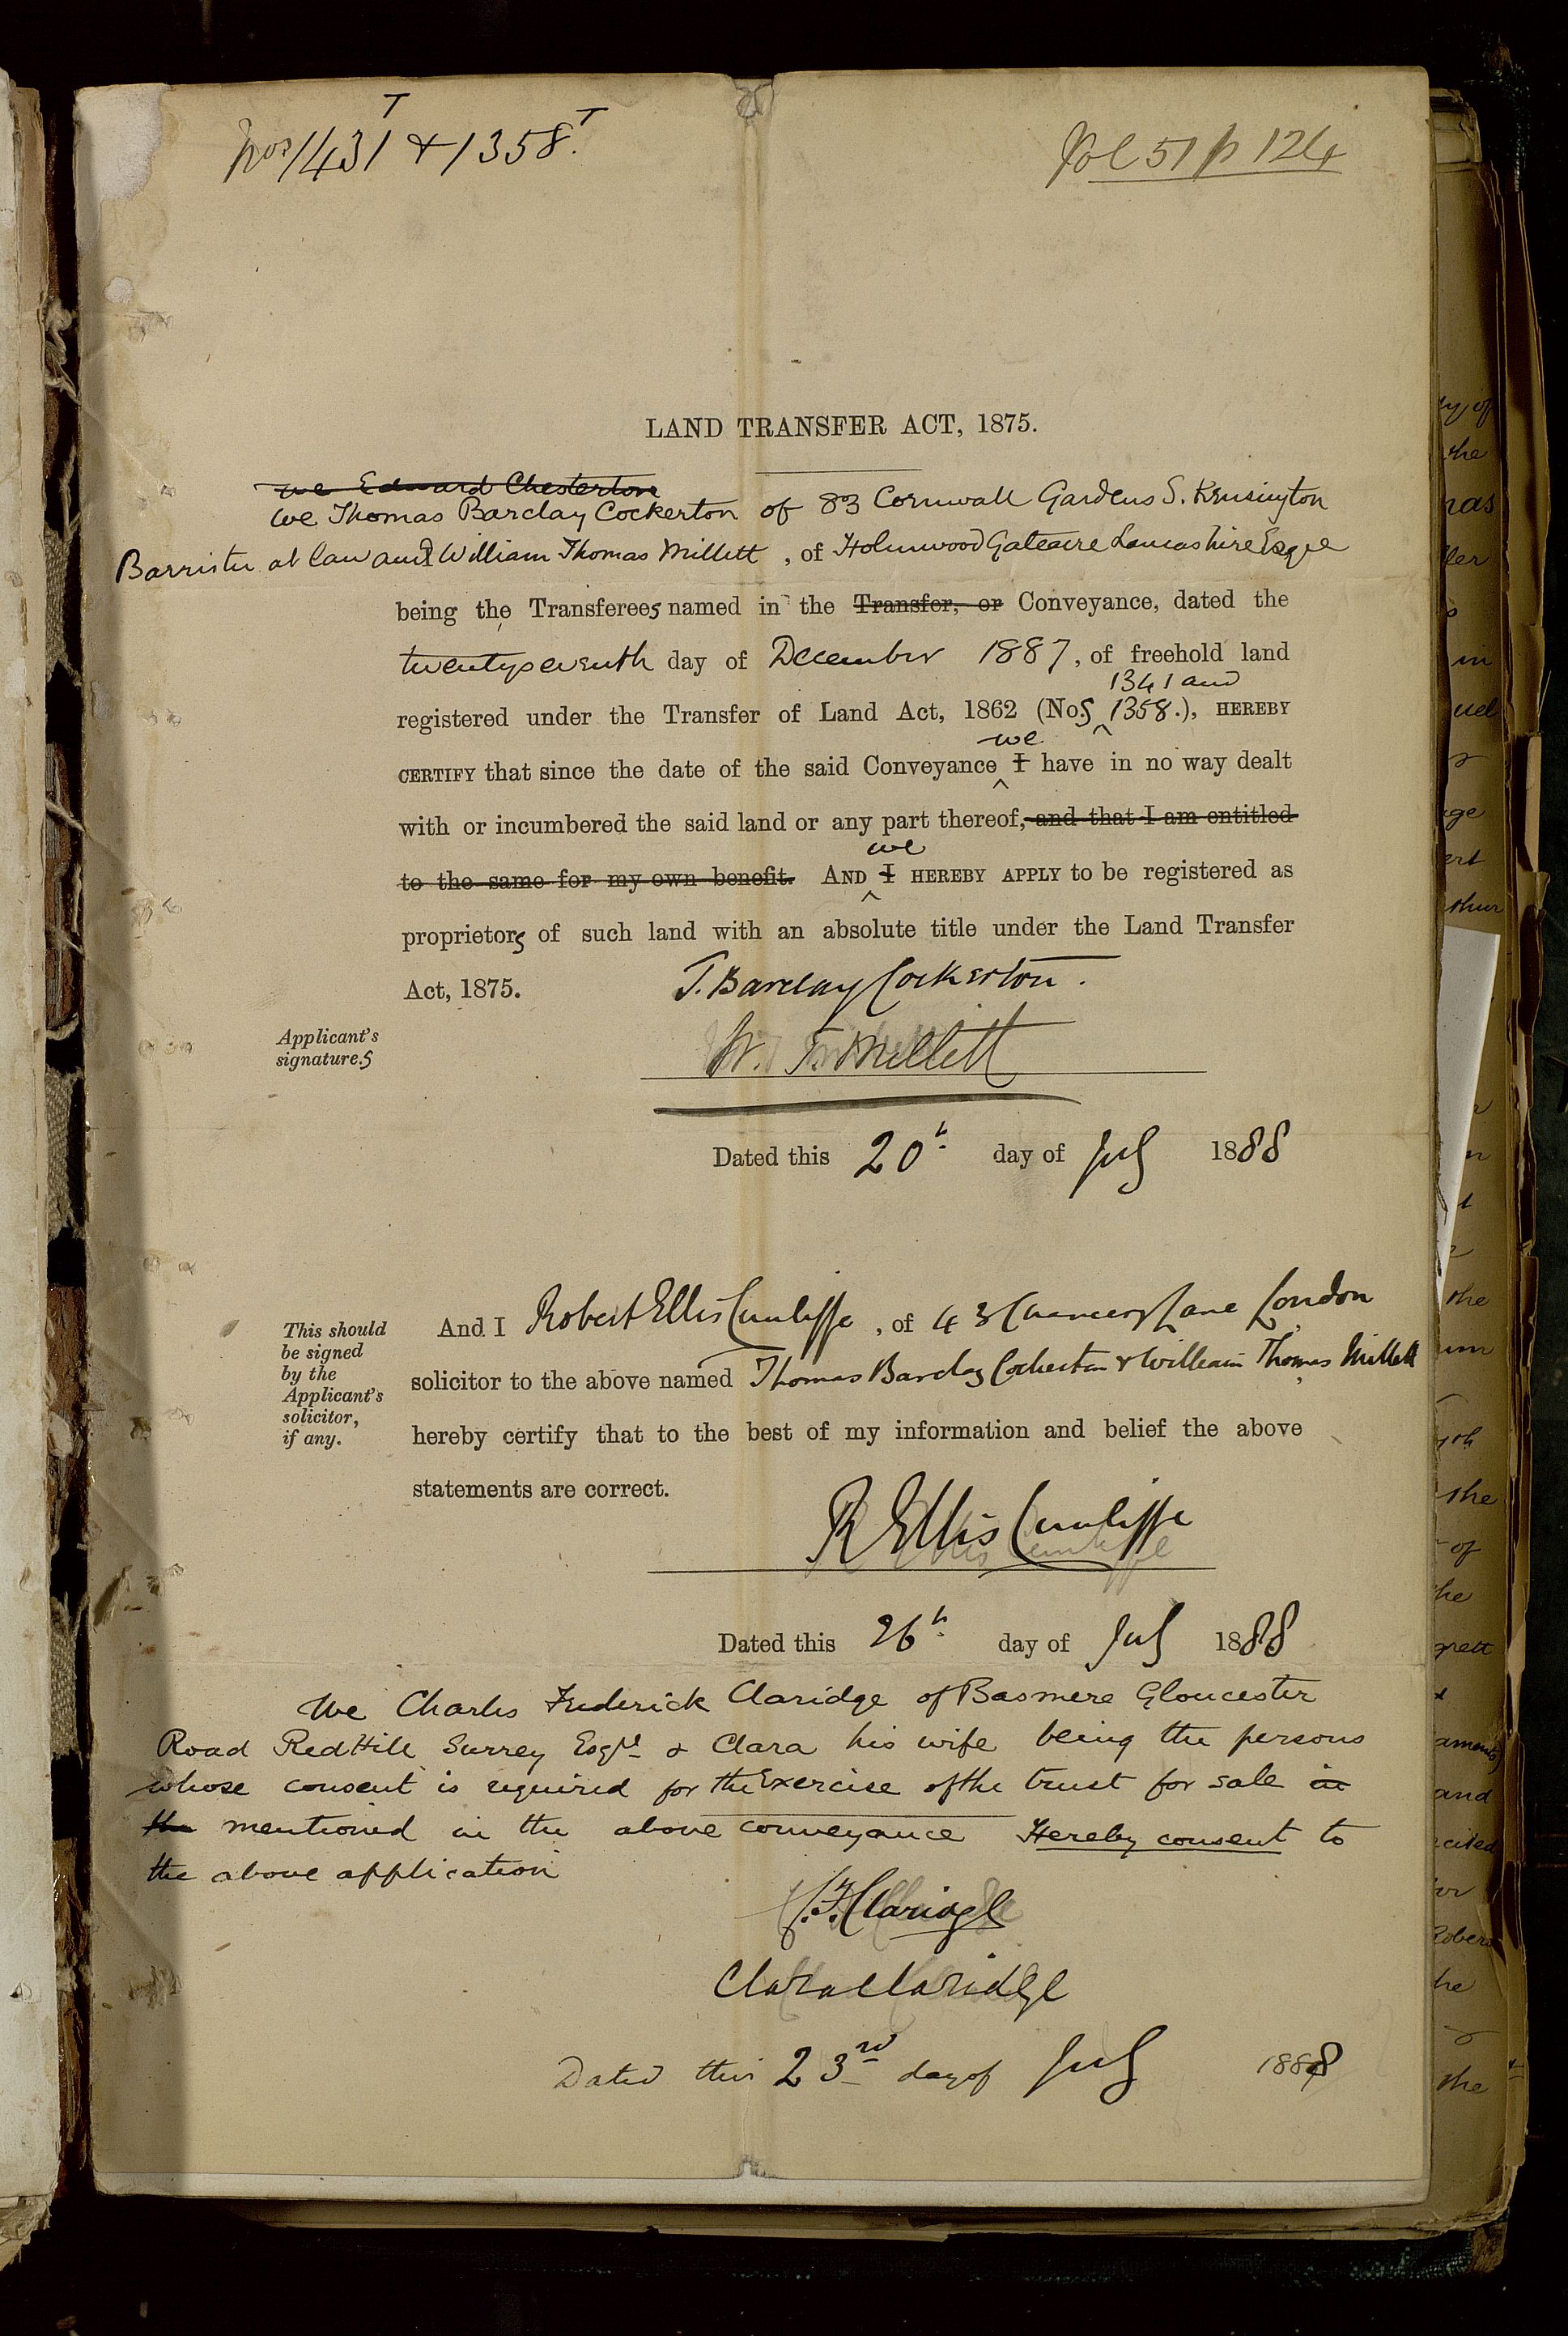 Nos 1431ᵀ & 1358ᵀ.
Vol 51 p 124
LAND TRANSFER ACT, 1875.
We Edward Chesterton
We Thomas Barclay Cockerton of 83 Cornwall Gardens S. Kensington
Barrister at law and William Thomas Millett, of Holmwood Gateacre Lancashire Esqre
being the Transferees named in the Transfer, or Conveyance, dated the
twentyseventh day of December 1887, of freehold land
1341 and
registered under the Transfer of Land Act, 1862 (Nos 1358.), HEREBY
we
CERTIFY that since the date of the said Conveyance I have in no way dealt
with or incumbered the said land or any part thereof, and that I am entitled
we
to the same for my own benefit. AND I HEREBY APPLY to be registered as
proprietors of such land with an absolute title under the Land Transfer
Act, 1875.
T. Barclay Cockerton.
Applicant's
signatures
W. T. Millett
Dated this 20th day of July 1888
This should
be signed
by the
Applicant's
solicitor,
if any.
And I Robert Ellis Cunliffe, of 43 Chancery Lane London
solicitor to the above named Thomas Barclay Cockerton & William Thomas Millett
hereby certify that to the best of my information and belief the above
statements are correct.
R Ellis Cunliffe
Dated this 26th day of July 1888
We Charles Frederick Claridge of Basmere Gloucester
Road RedHill Surrey Esqre & Clara his wife being the persons
whose consent is required for the Exercise of the trust for sale in
the mentioned in the above conveyance Hereby consent to
the above application
C. F. Claridge
Clara Claridge
Dated this 23rd day of July 1888